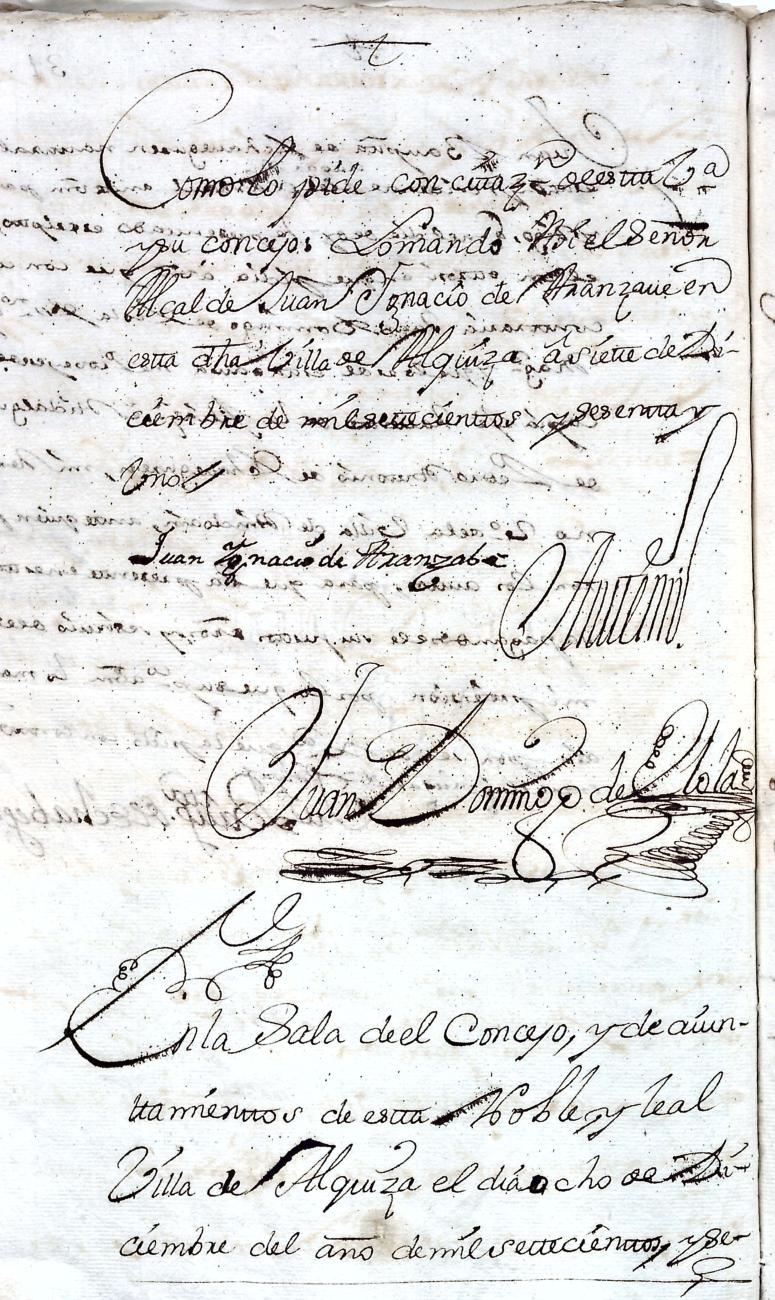 Como lo pide con cittaz.n de estta V.a
y su concejo: Lo mando Asi el Señor
Alcalde Juan Ygnacio de Aranzaue en
estta dha Villa de Alquiza á siette de Di-
ciembre de mil settecienttos y sesentta y
Uno
Juan Ygnacio de Aranzabe
Antemi.
Juan Domingo de Elola
En la Sala de el Concejo, y de aiun-
ttamienttos de estta Noble y leal
Villa de Alquiza el dia ocho de Di-
ciembre del año de mil settecienttos, y se-